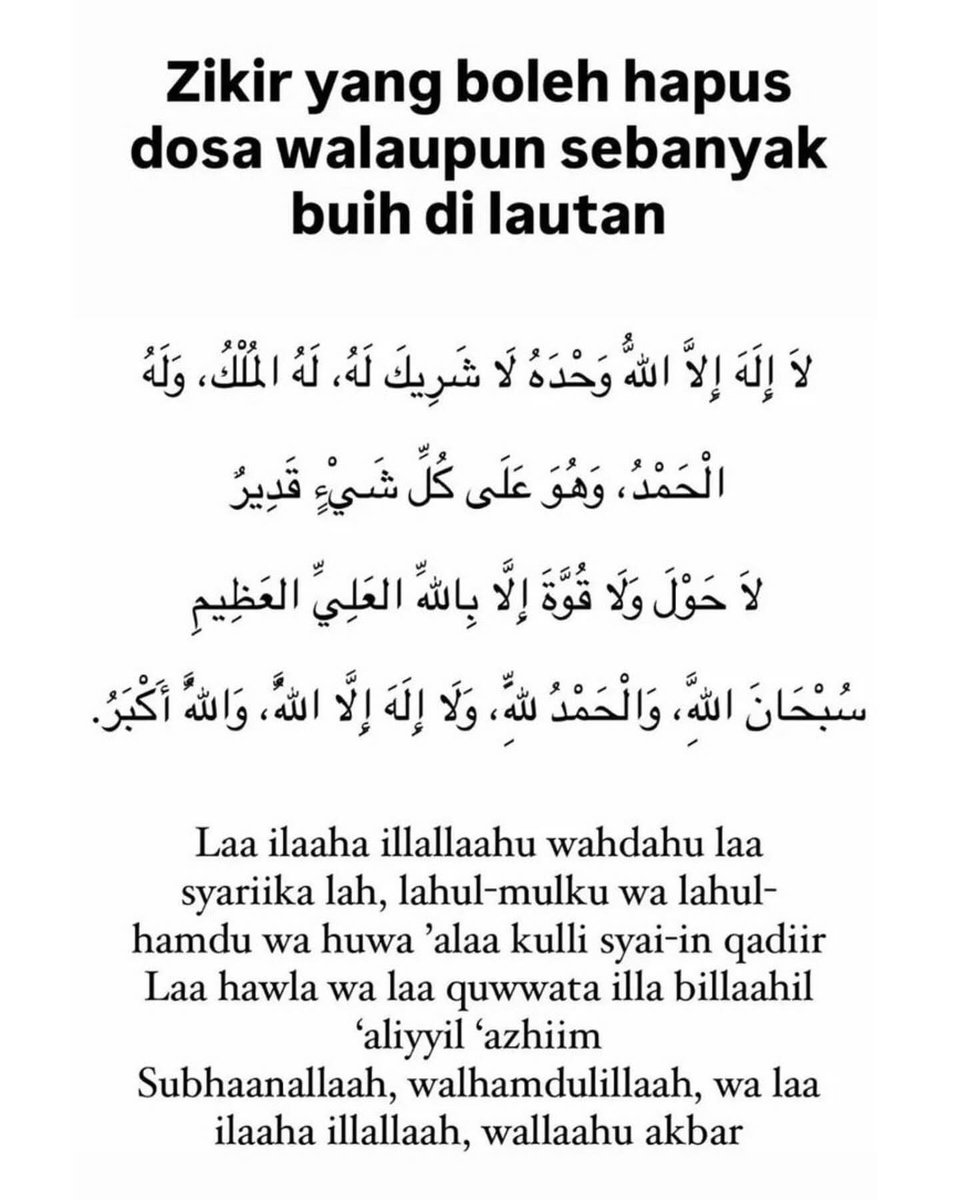 Zikir yang boleh hapus
dosa walaupun sebanyak
buih di lautan
لاَ إِلَهَ إِلاَّ اللهُ وَحْدَهُ لَا شَرِيكَ لَهُ، لَهُ المُلْكُ، وَلَهُ
الْحَمْدُ، وَهُوَ عَلَى كُلِّ شَيْءٍ قَدِيرٌ
لاَ حَوْلَ وَلَا قُوَّةَ إِلَّا بِاللهِ العَلِيِّ العَظِيمِ
سُبْحَانَ اللهِ، وَالْحَمْدُ للهِ، وَلَا إِلَهَ إِلَّا اللهُ، وَاللهُ أَكْبَرُ.
Laa ilaaha illallaahu wahdahu laa
syariika lah, lahul-mulku wa lahul-
hamdu wa huwa ’alaa kulli syai-in qadiir
Laa hawla wa laa quwwata illa billaahil
‘aliyyil ‘azhiim
Subhaanallaah, walhamdulillaah, wa laa
ilaaha illallaah, wallaahu akbar